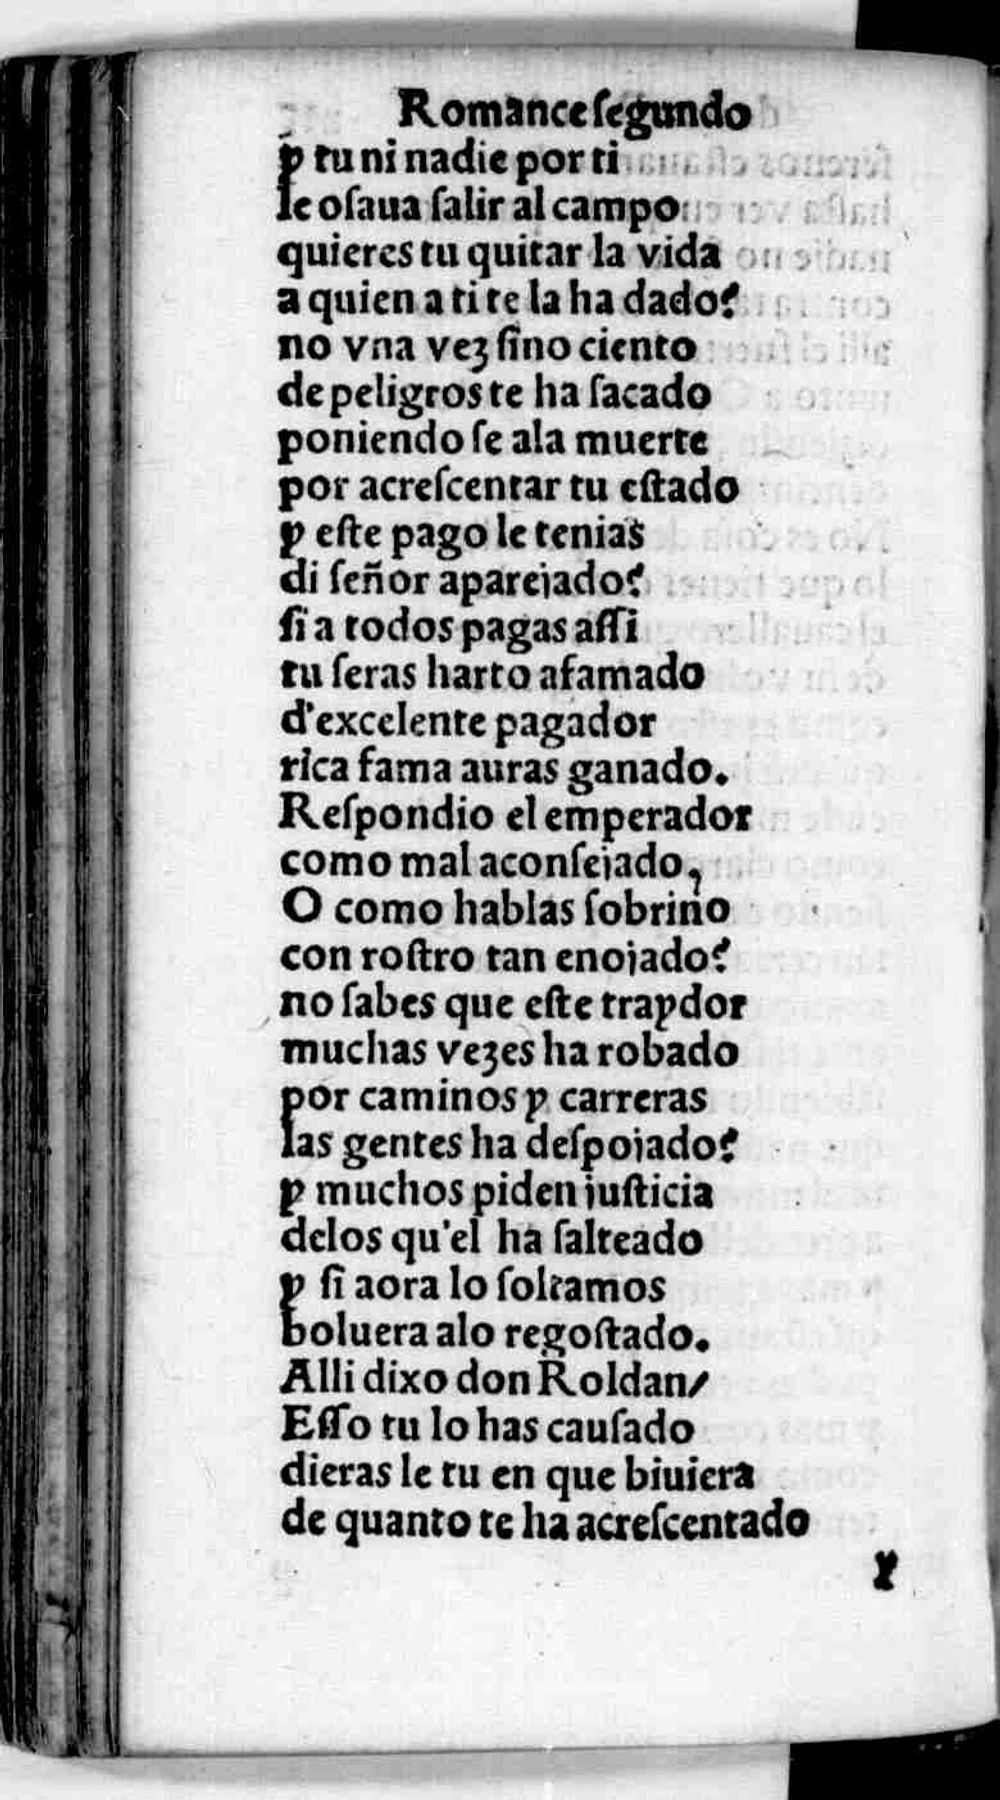 Romance ſegundo
y tu ni nadie por ti
le oſaua ſalir al campo
quieres tu quitar la vida
a quien a ti te la ha dado?
no vna vez ſino ciento
de peligros te ha ſacado
poniendo ſe ala muerte
por acreſcentar tu eſtado
y eſte pago le tenias
di ſeñor apareiado?
ſi a todos pagas aſſi
tu ſeras harto afamado
d'excelente pagador
rica fama auras ganado.
Reſpondio el emperador
como mal aconſeiado,
O como hablas ſobrino
con roſtro tan enoiado?
no ſabes que eſte traydor
muchas vezes ha robado
por caminos y carreras
las gentes ha deſpoiado?
y muchos piden iuſticia
delos qu'el ha ſalteado
y ſi aora lo ſoltamos
boluera alo regoſtado.
Alli dixo don Roldan/
Eſſo tu lo has cauſado
dieras le tu en que biuiera
de quanto te ha acreſcentado
Y